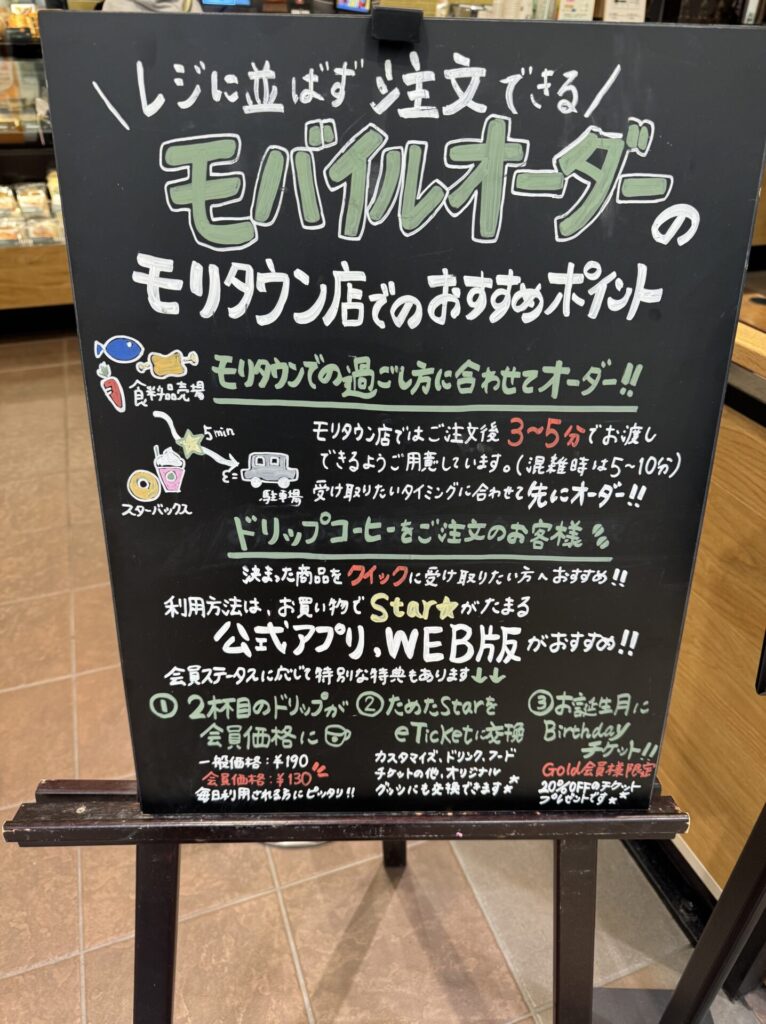 \レジに並ばず注文できる/
モバイルオーダーの
モリタウン店でのおすすめポイント
食料品売場
モリタウンでの過ごし方に合わせてオーダー!!
5min
スターバックス
駐車場
モリタウン店ではご注文後 3〜5分でお渡し
できるようご用意しています。(混雑時は5〜10分)
受け取りたいタイミングに合わせて先にオーダー!!
ドリップコーヒーをご注文のお客様
決まった商品をクイックに受け取りたい方へおすすめ!!
利用方法は、お買い物でStar★がたまる
公式アプリ、WEB版がおすすめ!!
会員ステータスに応じて特別な特典もあります↓↓
① 2杯目のドリップが
会員価格に
一般価格:¥190
会員価格:¥130
毎日利用される方にピッタリ!!
② ためたStarを
eTicketに交換
カスタマイズ、ドリンク、フード
チケットの他、オリジナル
グッツにも交換できます★
③ お誕生月に
Birthday
チケット!!
Gold会員様限定
20%OFFのチケット
プレゼントです★